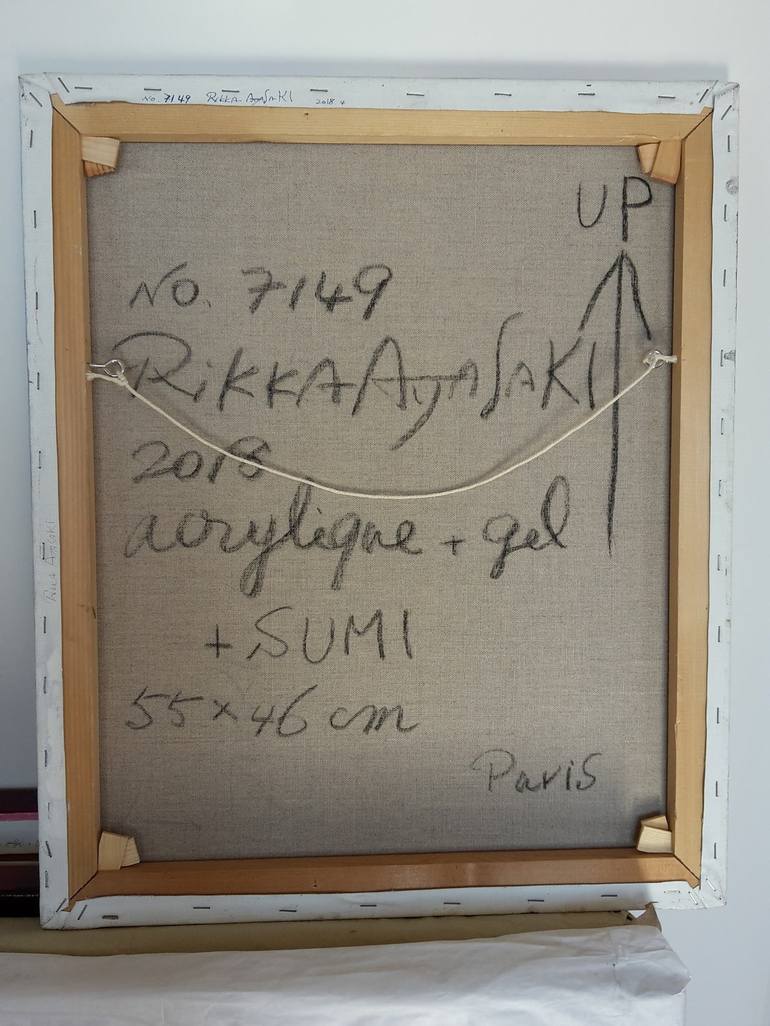 No. 7149 RIKKA AyASAKI 2018
UP
No. 7149
RiKKA AyASAKI
2018
acrylique + gel
+ SUMI
55 x 46 cm
Paris